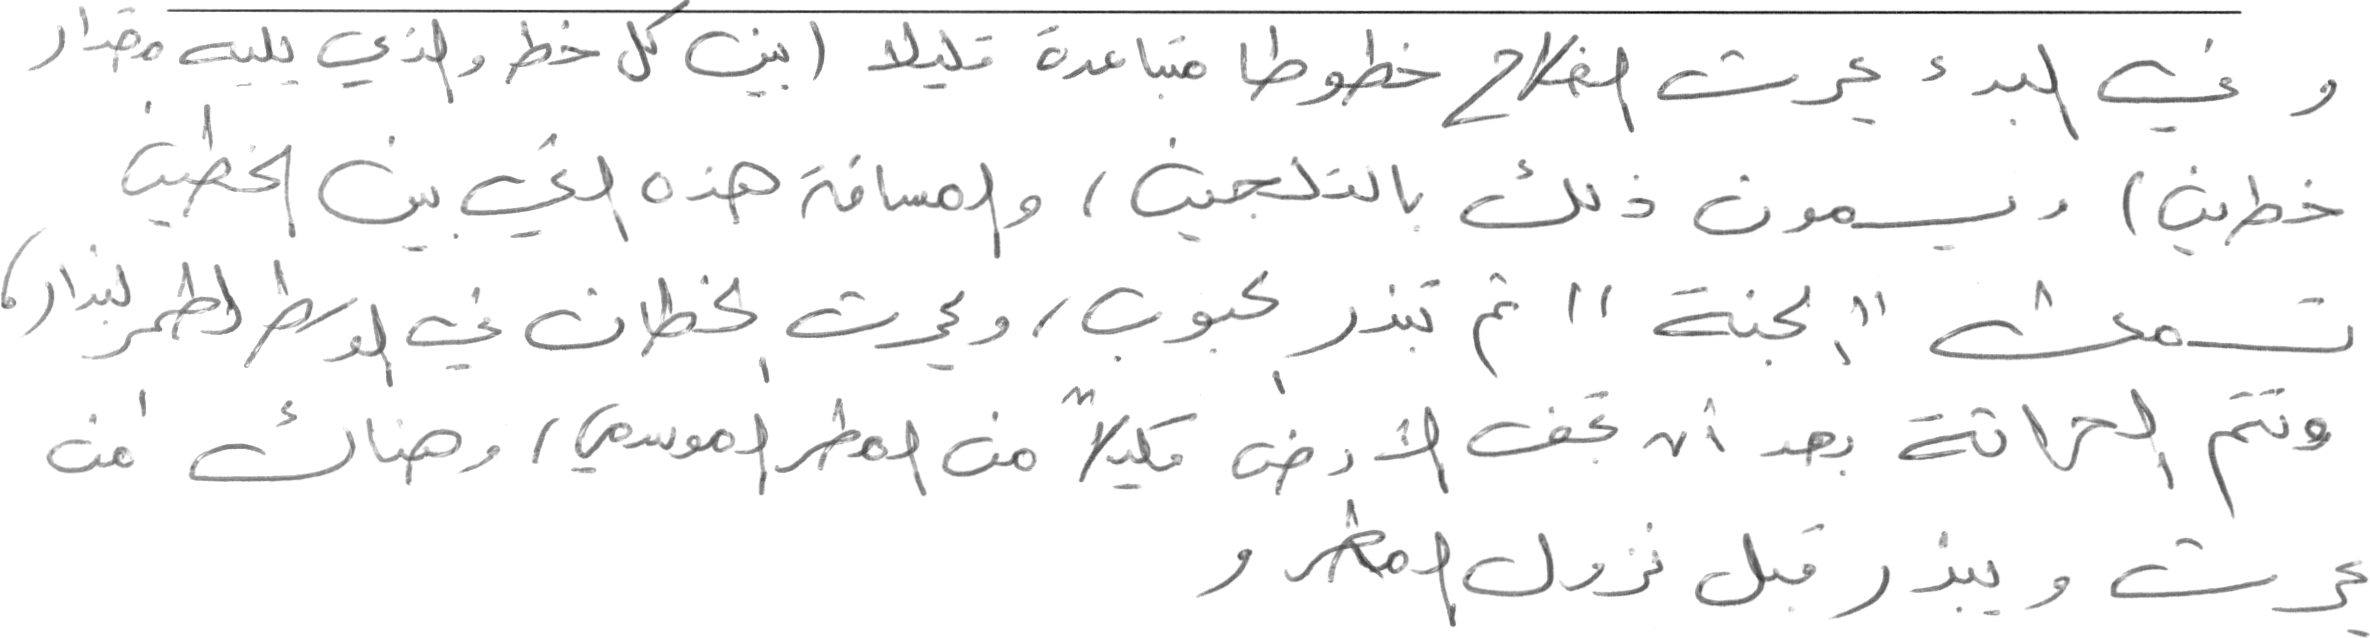 وفي البدء يحرث الفلاح خطوطا متباعدة قليلا (بين كل خط والذي يليه مقدار
خطين) ويسمون ذلك بالتلجين، والمسافة هذه التي بين الخطين
تسمى "الجنة" ثم تبذر الحبوب، ويحرث الخطان في الوسط لطمر البذار،
وتتم الحراثة بعد أن تجف الأرض قليلاً من المطر الموسمي، وهناك من
يحرث ويبذر قبل نزول المطر و